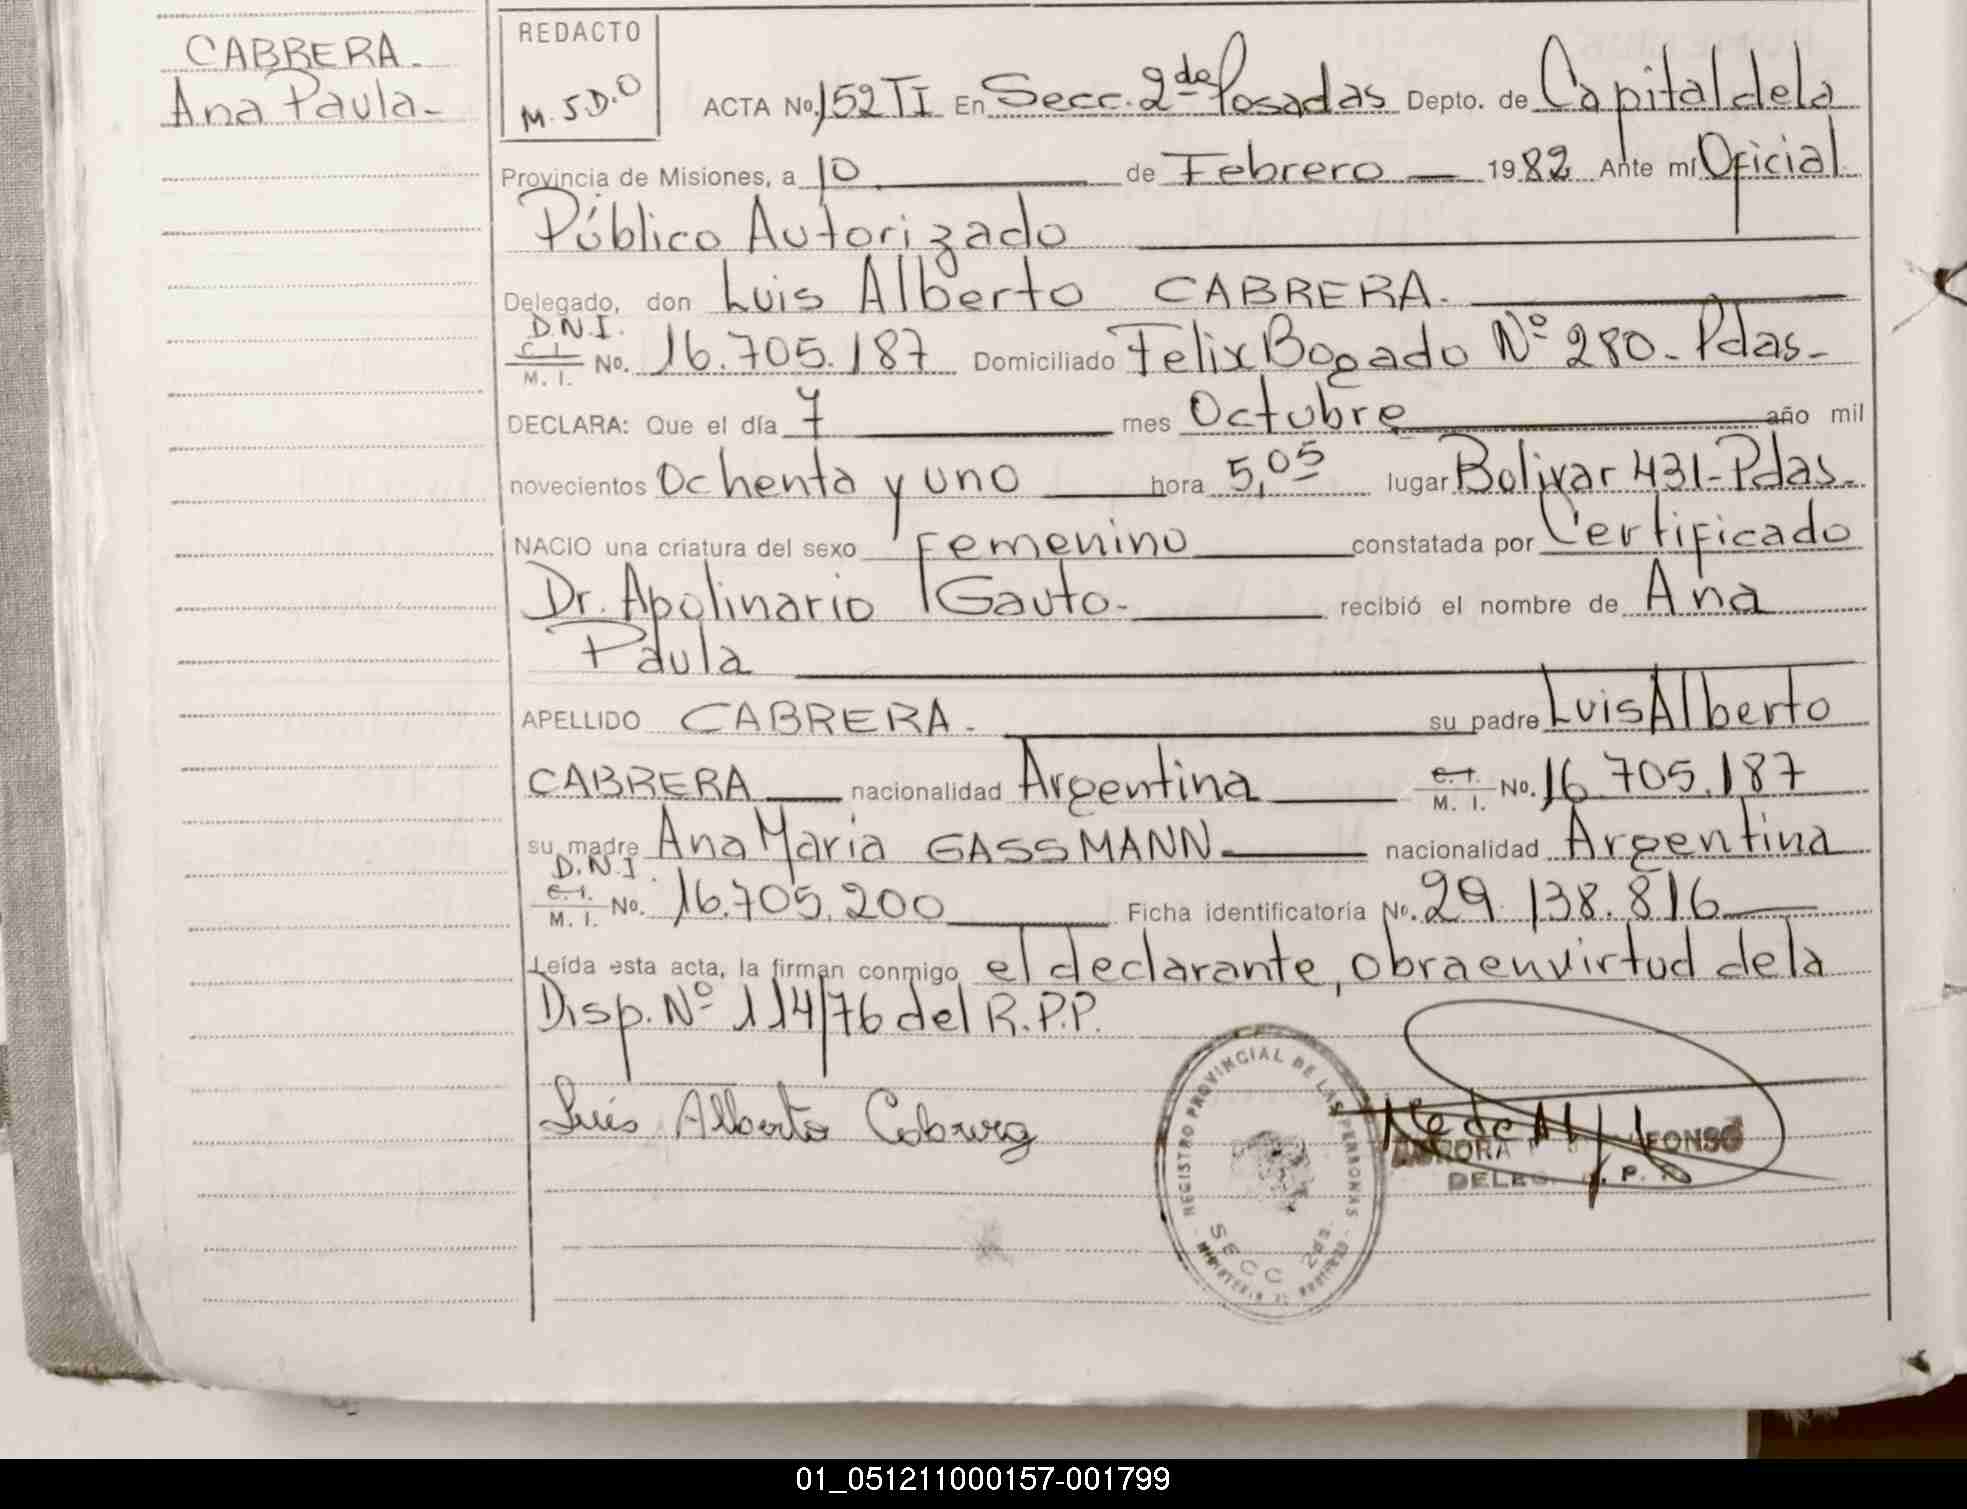 CABRERA.
Ana Paula-
REDACTO
M.S.D.O
ACTA No. 152 TI En Secc. 2da Posadas Depto. de Capital de la
Provincia de Misiones, a 10 de Febrero 1982 Ante mí Oficial
Público Autorizado
Delegado, don Luis Alberto CABRERA.
D.N.I.
C. I.
M. I. No. 16.705.187 Domiciliado Felix Bogado Nº 280- Pdas-
DECLARA: Que el día 7 mes Octubre año mil
novecientos Ochenta y uno hora 5,05 lugar Bolivar 431- Pdas-
NACIO una criatura del sexo Femenino constatada por Certificado
Dr. Apolinario Gauto- recibió el nombre de Ana
Paula
APELLIDO CABRERA. su padre Luis Alberto
CABRERA nacionalidad Argentina C. I. M. I. No. 16.705.187
su madre Ana Maria GASSMANN nacionalidad Argentina
D.N.I.
C. I.
M. I. No. 16.705.200 Ficha identificatoria No. 29.138.816
Leída esta acta, la firman conmigo el declarante, obra en virtud de la
Disp. Nº 114/76 del R.P.P.
Luis Alberto Cabrera
REGISTRO PROVINCIAL DE LAS PERSONAS
SECC 2da.
AURORA
01_051211000157-001799